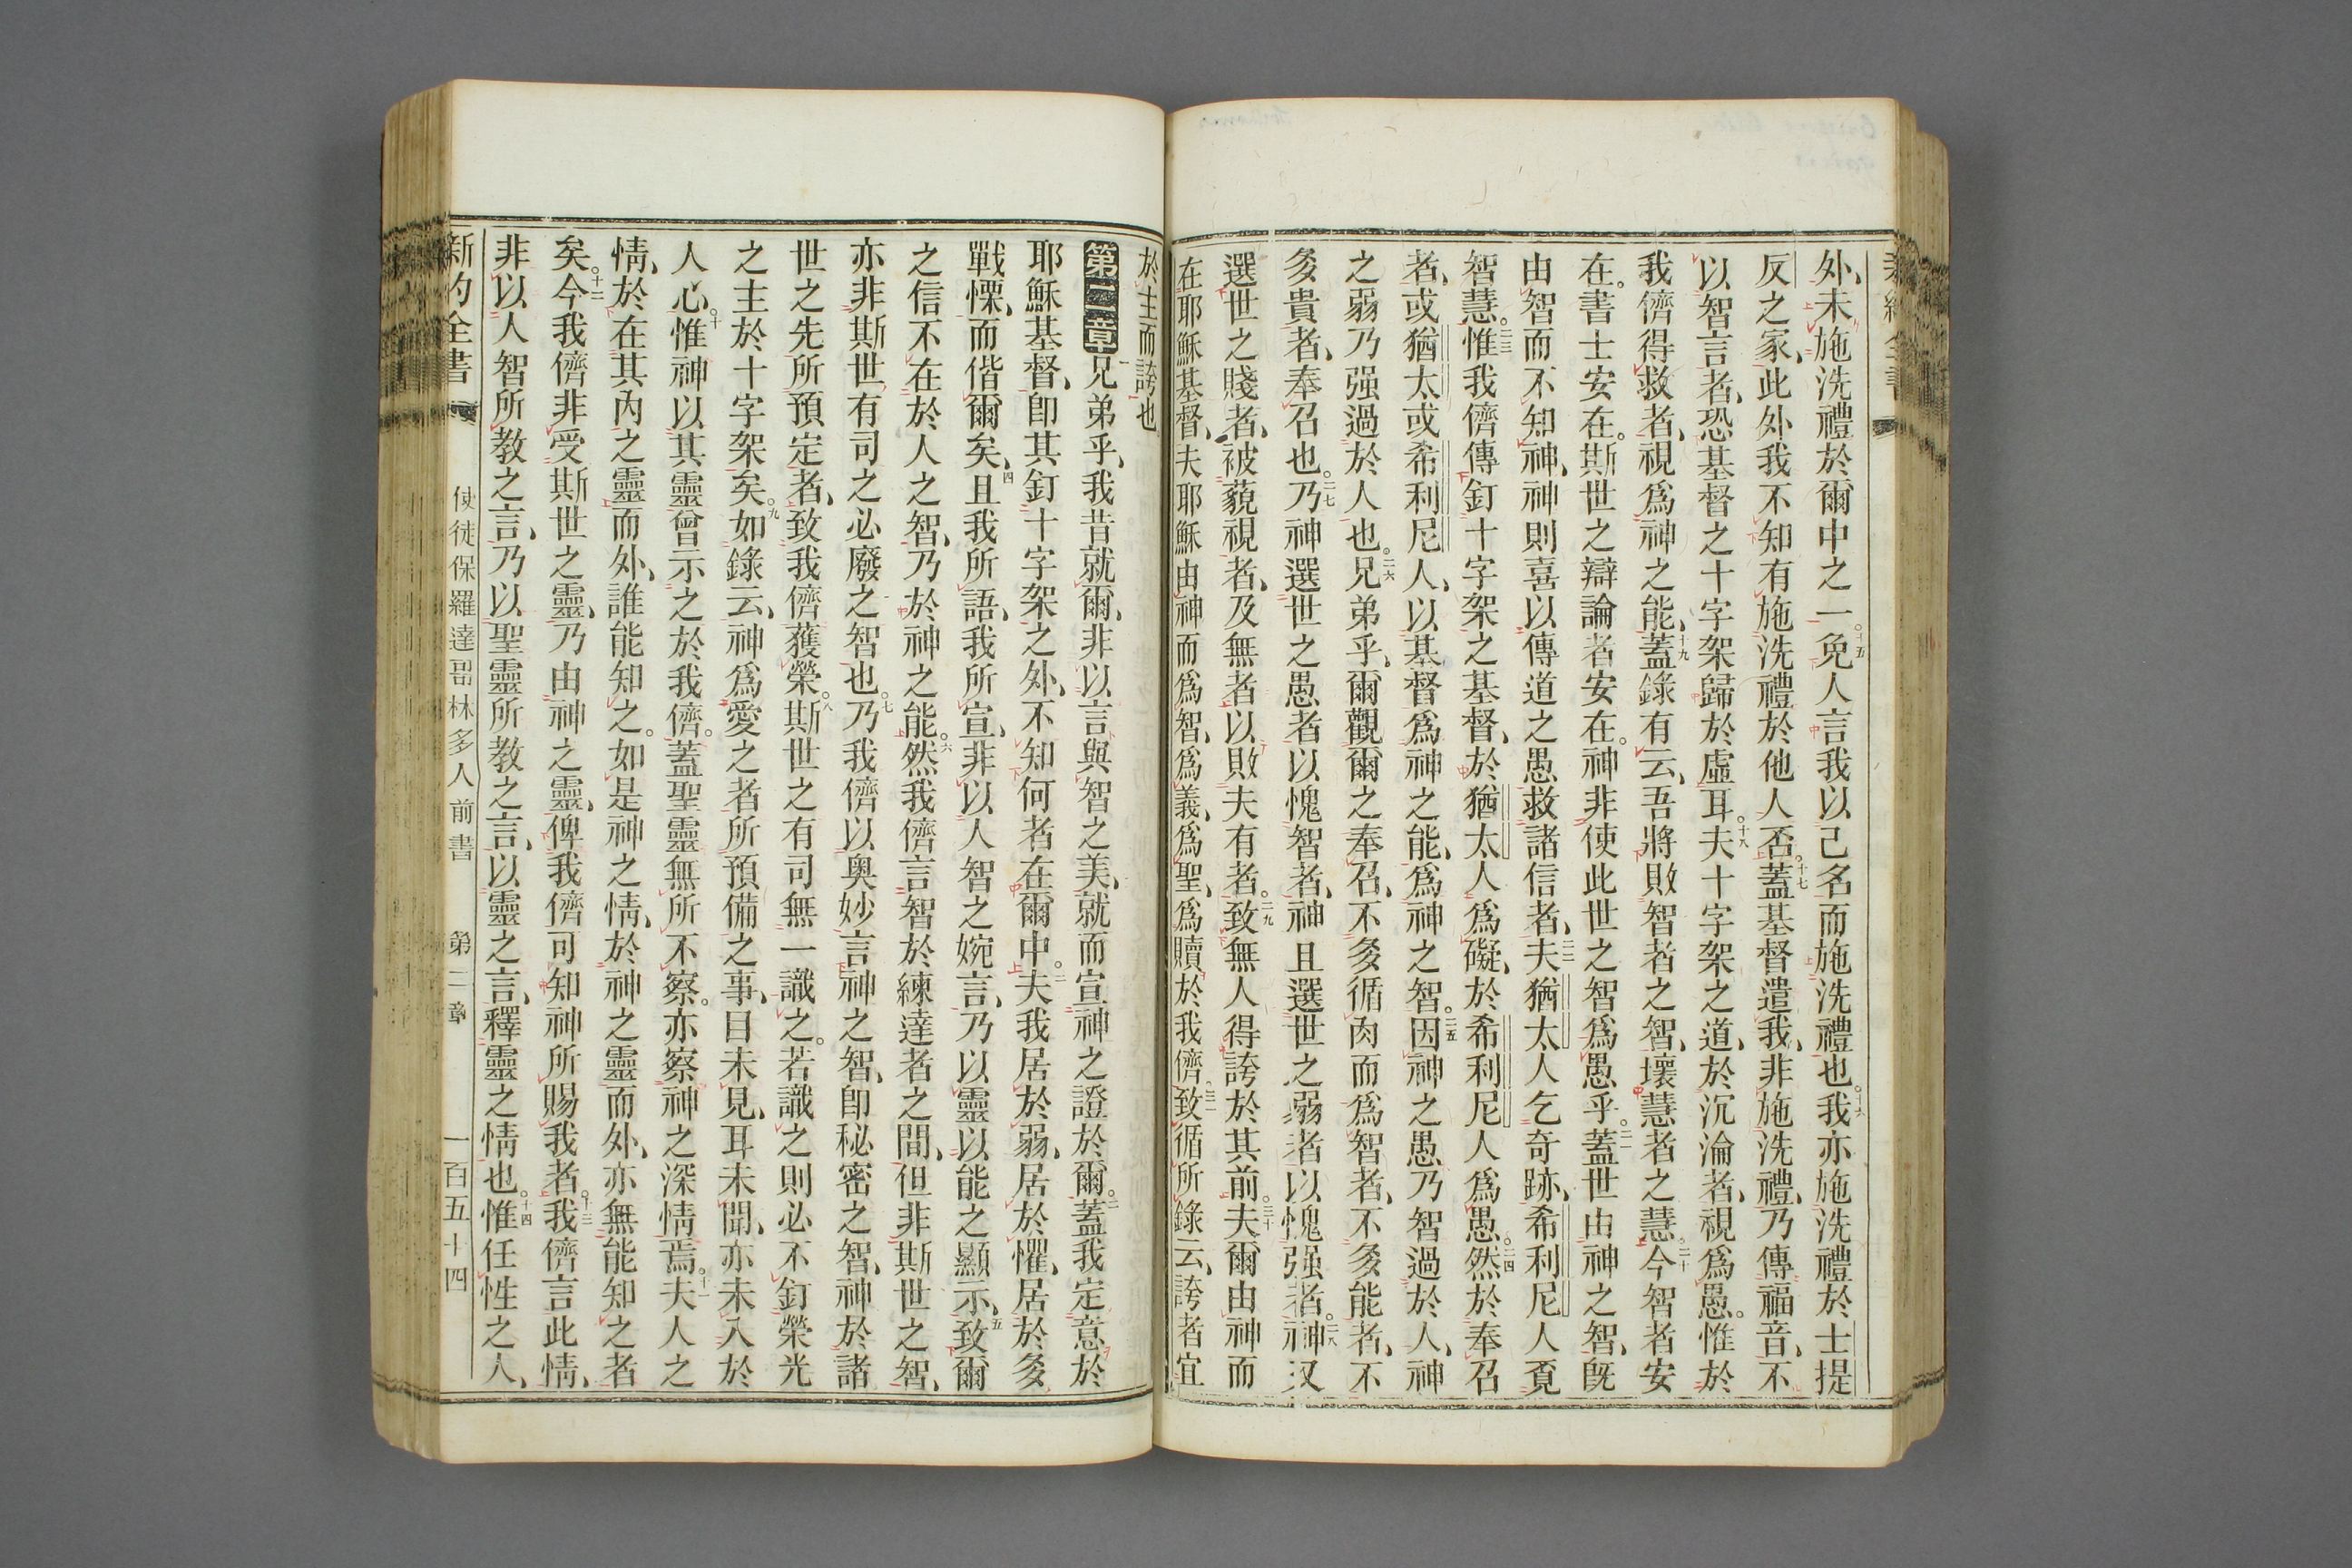 外、未施洗禮於爾中之一。十五免人言我以己名而施洗禮也。十六我亦施洗禮於士提
反之家、此外我不知有施洗禮於他人否。十七蓋基督遣我、非施洗禮、乃傳福音、不
以智言者、恐基督之十字架歸於虛耳。十八夫十字架之道、於沉淪者、視爲愚。惟於
我儕得救者、視爲神之能、十九蓋錄有云、吾將敗智者之智、壞慧者之慧。二十今智者安
在。書士安在。斯世之辯論者安在。神非使此世之智爲愚乎。二一蓋世由神之智、旣
由智而不知神、神則喜以傳道之愚救諸信者、二二夫猶太人乞奇跡、希利尼人覔
智慧。二三惟我儕傳釘十字架之基督、於猶太人爲礙、於希利尼人爲愚。二四然於奉召
者、或猶太或希利尼人、以基督爲神之能、爲神之智。二五因神之愚乃智過於人、神
之弱乃强過於人也。二六兄弟乎、爾觀爾之奉召、不多循肉而爲智者、不多能者、不
多貴者、奉召也。二七乃神選世之愚者以愧智者、神且選世之弱者以愧强者。二八神又
選世之賤者、被藐視者、及無者以敗夫有者。二九致無人得誇於其前。三十夫爾由神而
在耶穌基督、夫耶穌由神而爲智、爲義、爲聖、爲贖於我儕。三一致循所錄云、誇者宜
於主而誇也
第二章 一兄弟乎、我昔就爾、非以言與智之美、就而宣神之證於爾。二蓋我定意於
耶穌基督、卽其釘十字架之外、不知何者在爾中。三夫我居於弱、居於懼、居於多
戰慄、而偕爾矣、四且我所語、我所宣、非以人智之婉言、乃以靈以能之顯示、五致爾
之信不在於人之智、乃於神之能。六然我儕言智於練達者之間、但非斯世之智、
亦非斯世有司之必廢之智也。七乃我儕以奥妙言神之智、卽秘密之智、神於諸
世之先所預定者、致我儕獲榮。八斯世之有司無一識之。若識之則必不釘榮光
之主於十字架矣。九如錄云、神爲愛之者所預備之事、目未見、耳未聞、亦未入於
人心。十惟神以其靈曾示之於我儕。蓋聖靈無所不察。亦察神之深情焉。十一夫人之
情、於在其內之靈而外、誰能知之。如是神之情、於神之靈而外、亦無能知之者
矣。十二今我儕非受斯世之靈、乃由神之靈、俾我儕可知神所賜我者。十三我儕言此情、
非以人智所教之言、乃以聖靈所教之言、以靈之言、釋靈之情也。十四惟任性之人、
新約全書 使徒保羅達哥林多人前書 第二章 一百五十四